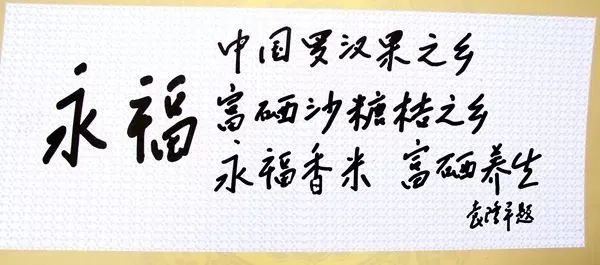 永福
中国罗汉果之乡
富硒沙糖桔之乡
永福香米 富硒养生
袁隆平题